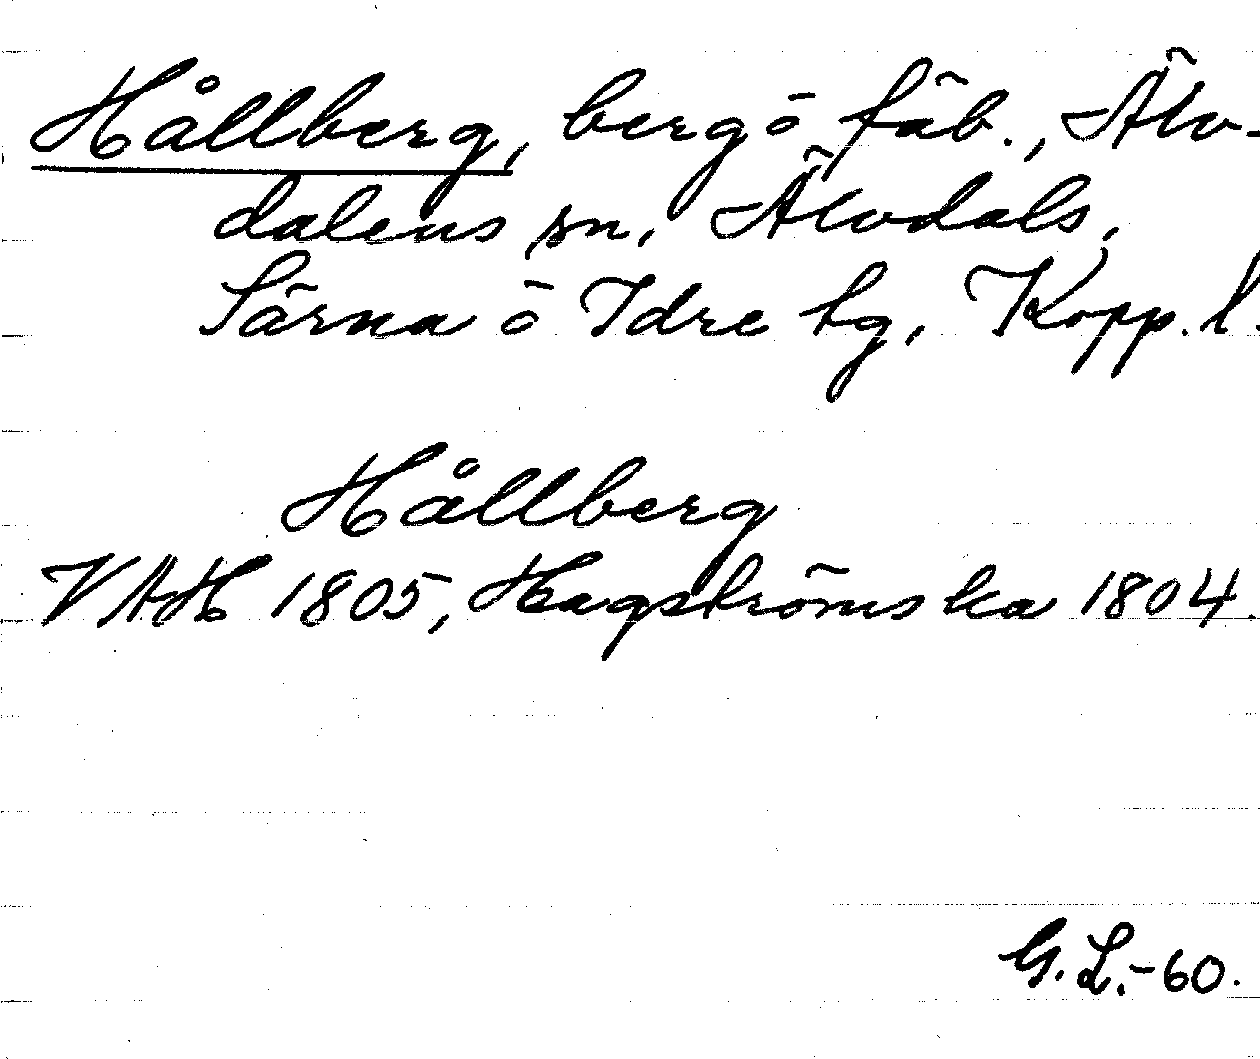 Hållberg, berg o fäb., Älv-
dalens sn, Älvdals,
Särna o Idre tg, Kopp. l.
Hållberg
VAH 1805, Hagströmska 1804.
G. L. -60.